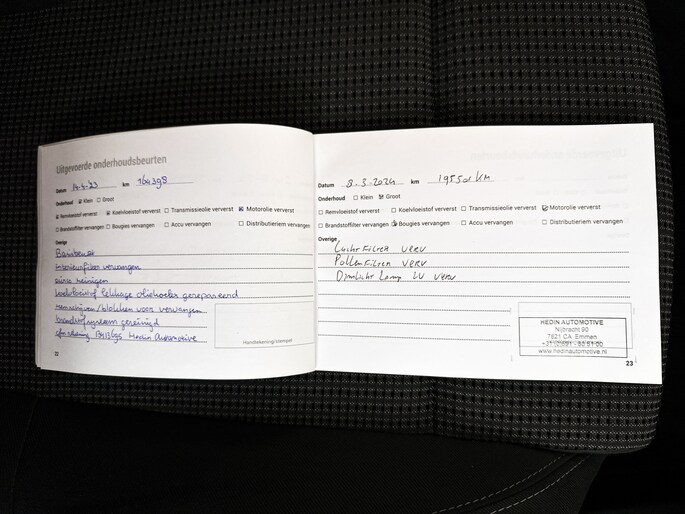 Uitgevoerde onderhoudsbeurten
Datum 14-4-'23 km 164398
Onderhoud Klein Groot
Remvloeistof ververst Koelvloeistof ververst Transmissieolie ververst Motorolie ververst
Brandstoffilter vervangen Bougies vervangen Accu vervangen Distributieriem vervangen
Overige
interieurfilter vervangen
reinigen
koelvloeistof lekkage oliekoeler gerepareerd
remschijven/blokken voor vervangen
brandstofsysteem gereinigd
Hedin Automotive
Handtekening/stempel
22
Datum 8-3-2024 km 195501 KM
Onderhoud Klein Groot
Remvloeistof ververst Koelvloeistof ververst Transmissieolie ververst Motorolie ververst
Brandstoffilter vervangen Bougies vervangen Accu vervangen Distributieriem vervangen
Overige
Luchtfilter verv
Pollenfilter verv
Dimlicht Lamp LV verv
HEDIN AUTOMOTIVE
Nijbracht 90
7821 CA Emmen
www.hedinautomotive.nl
23